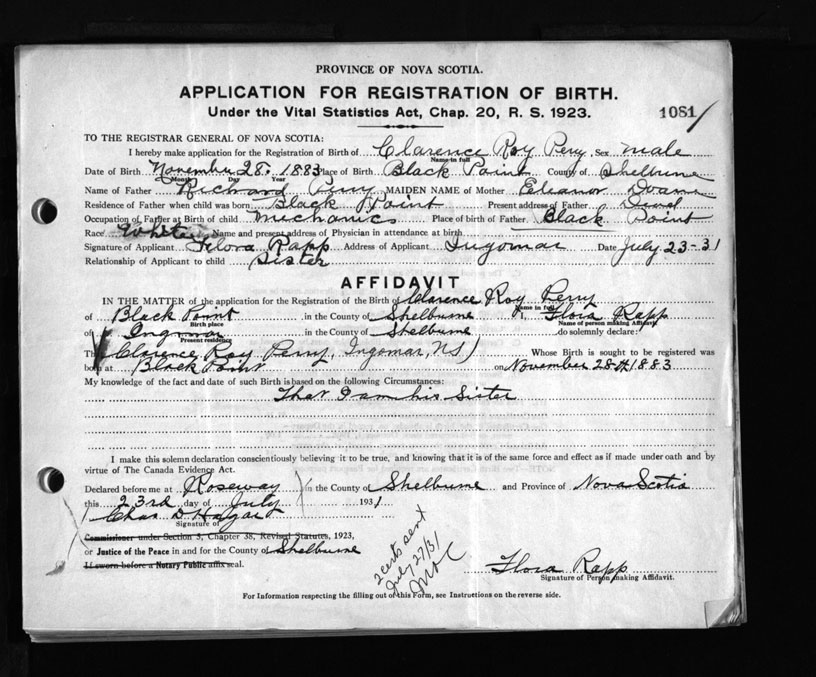 PROVINCE OF NOVA SCOTIA.
APPLICATION FOR REGISTRATION OF BIRTH.
Under the Vital Statistics Act, Chap. 20, R. S. 1923.
1081
TO THE REGISTRAR GENERAL OF NOVA SCOTIA:
I hereby make application for the Registration of Birth of Clarence Roy Perry Sex male
Name in full
Date of Birth November 28. 1883 Place of Birth Black Point County of Shelburne
Month Day Year
Name of Father Richard Perry MAIDEN NAME of Mother Eleanor Doane
Residence of Father when child was born Black Point Present address of Father Dead
Occupation of Father at Birth of child Mechanics Place of birth of Father Black Point
Race White Name and present address of Physician in attendance at birth
Signature of Applicant Flora Rapp Address of Applicant Ingomar Date July 23-31
Relationship of Applicant to child Sister
AFFIDAVIT
IN THE MATTER of the application for the Registration of the Birth of Clarence Roy Perry
Name in full
of Black Point in the County of Shelburne I, Flora Rapp
Birth place Name of person making Affidavit
of Ingomar in the County of Shelburne do solemnly declare:
Present residence
Clarence Roy Perry, Ingomar, NS) Whose Birth is sought to be registered was
born at Black Point on November 28th 1883
My knowledge of the fact and date of such Birth is based on the following Circumstances:
That I am his Sister
I make this solemn declaration conscientiously believing it to be true, and knowing that it is of the same force and effect as if made under oath and by
virtue of The Canada Evidence Act.
Declared before me at Roseway in the County of Shelburne and Province of Nova Scotia
this 23rd day of July 1931
Chas D Hagar
Signature of
Commissioner under Section 3, Chapter 38, Revised Statutes, 1923,
or Justice of the Peace in and for the County of Shelburne
If sworn before a Notary Public affix seal.
2 Certs sent
July 27/31
Flora Rapp
Signature of Person making Affidavit.
For Information respecting the filling out of this Form, see Instructions on the reverse side.